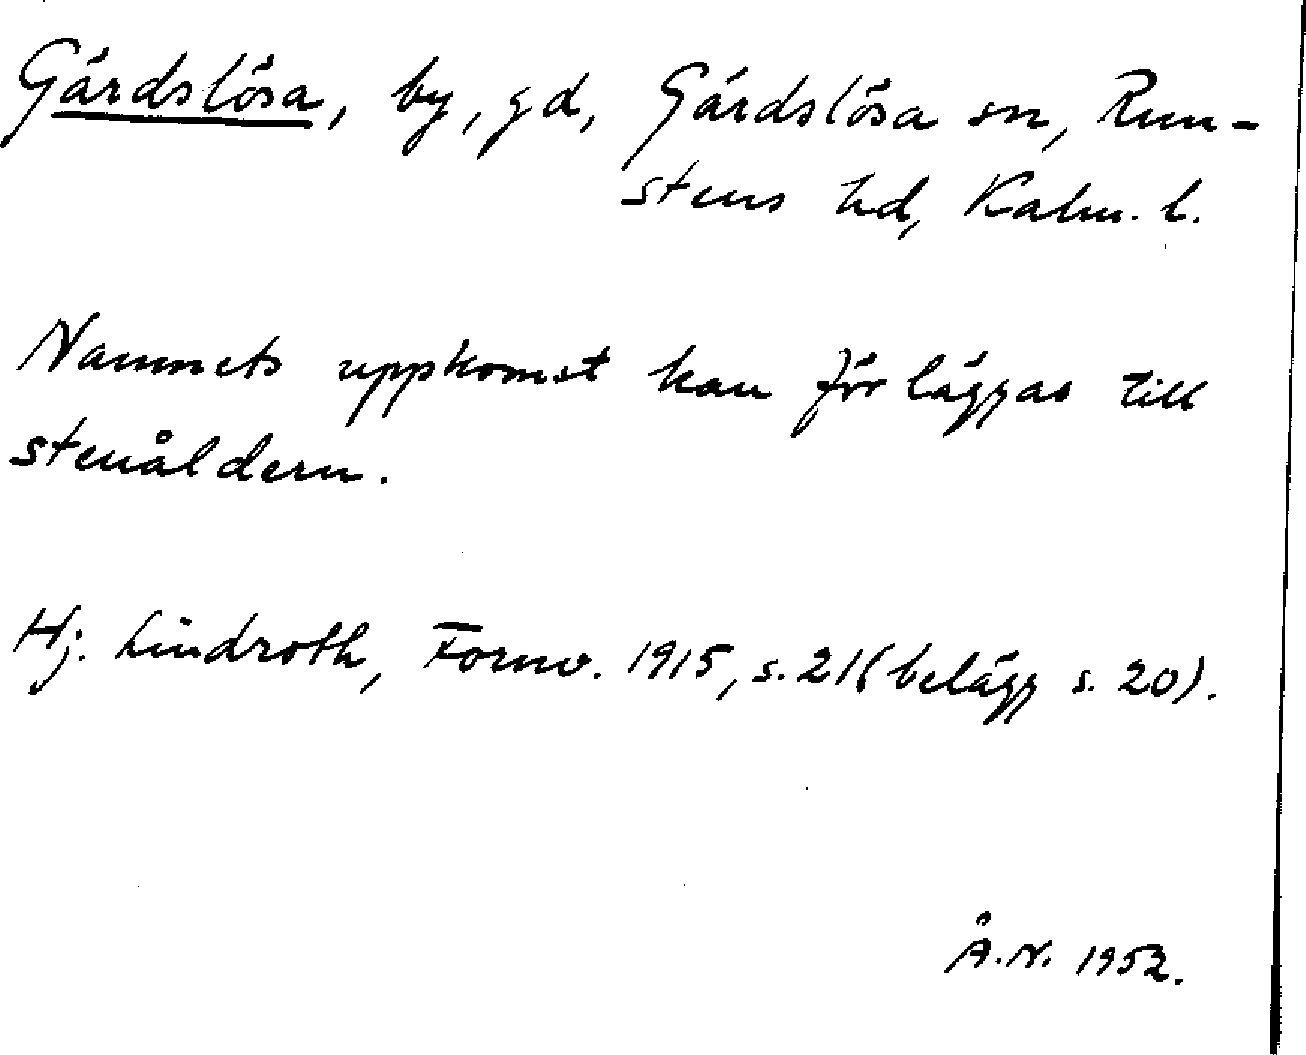 Gärdslösa, by, gd, Gärdslösa sn, Run-
stens hd, Kalm. l.
Namnets uppkomst kan förläggas till
stenåldern.
Hj. Lindroth, Fornv. 1915, s. 21 (belägg s. 20).
Å.N. 1952.